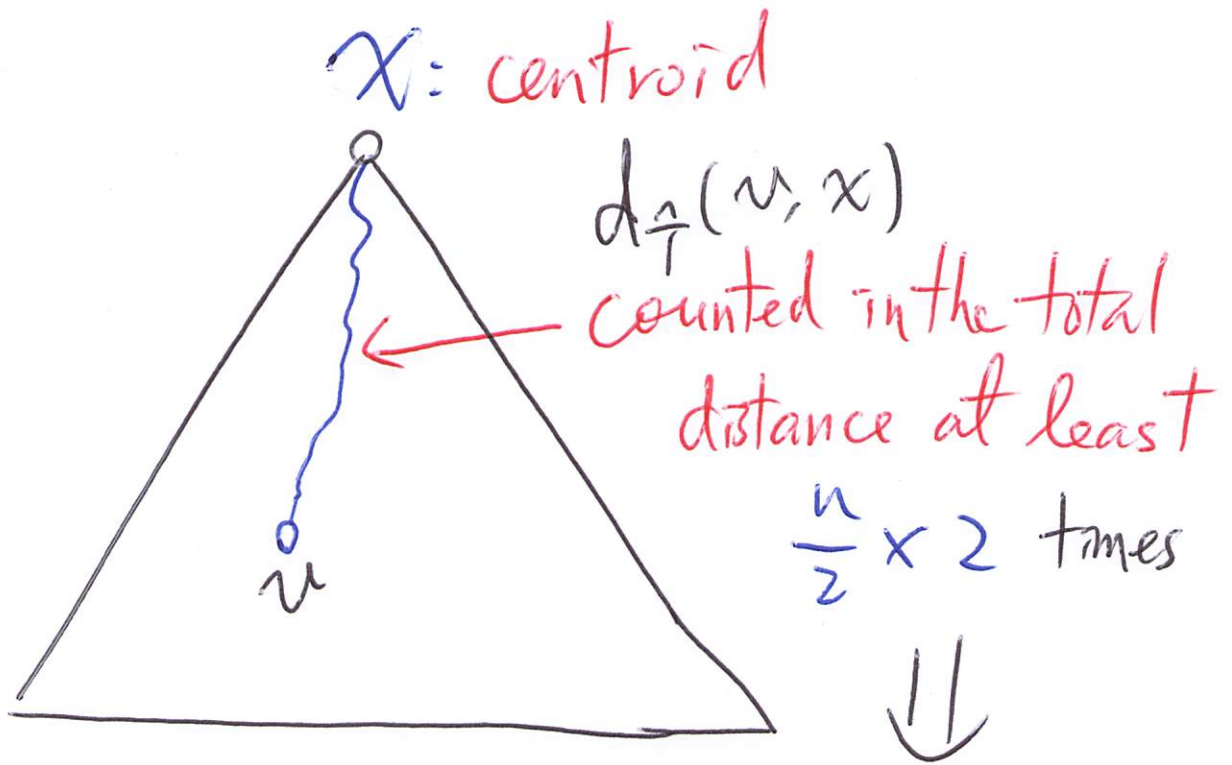 x: centroid
d_T̂(v, x)
counted in the total
distance at least
n/2 × 2 times
⇓
v